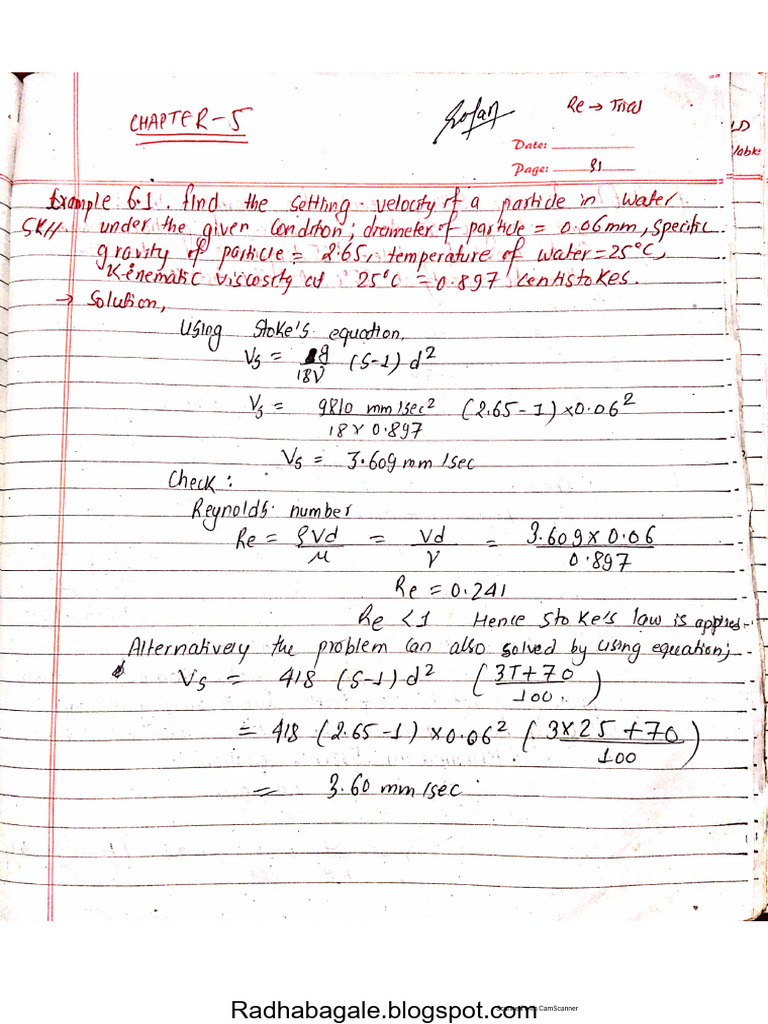 CHAPTER-5
Re → Trial
Date:
Page: 81
Example 6.1. find the settling velocity of a particle in water
SKH under the given condition; diameter of particle = 0.06mm, specific
gravity of particle = 2.65, temperature of water = 25°C,
Kinematic viscosity at 25°C = 0.897 centistokes.
→ Solution,
Using Stoke's equation,
Vs = g/18ν (S-1) d²
Vs = 9810 mm/sec² / 18 × 0.897 (2.65-1) × 0.06²
Vs = 3.609 mm/sec
Check:
Reynolds number
Re = ρVd/μ = Vd/ν = 3.609 × 0.06 / 0.897
Re = 0.241
Re < 1 Hence Stoke's law is
Alternatively the problem can also solved by using equation;
Vs = 418 (S-1) d² (3T+70 / 100)
= 418 (2.65-1) × 0.06² (3×25+70 / 100)
= 3.60 mm/sec
Radhabagale.blogspot.com
CamScanner